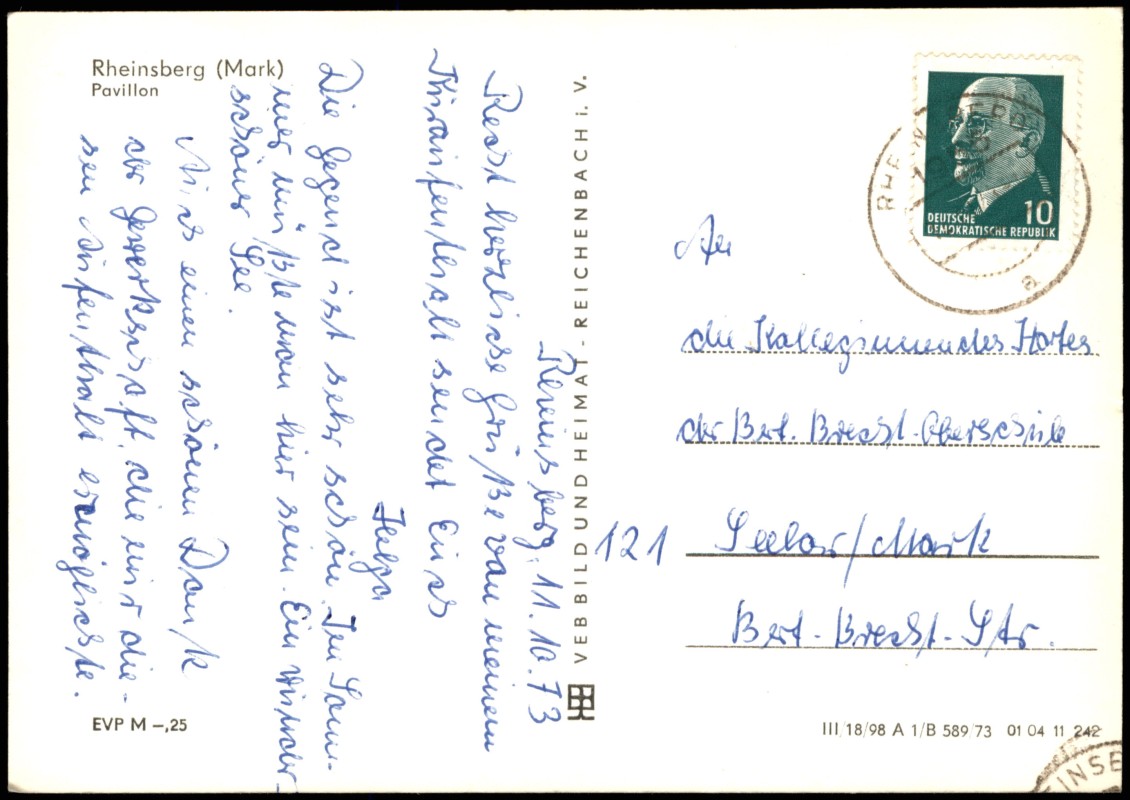 Rheinsberg (Mark)
Pavillon
Rheinsberg, 11.10.73
Recht herzliche Grüße von meinem
Kuraufenthalt sendet Euch
Helga
Die Gegend ist sehr schön. Im Som-
mer müßte man hier sein. Ein wunder-
schöner See.
Auch einen schönen Dank
der Gewerkschaft, die mir die-
sen Aufenthalt ermöglichte.
EVP M –,25
VEB BILD UND HEIMAT - REICHENBACH i. V.
DEUTSCHE
DEMOKRATISCHE REPUBLIK
10
RHEINSBERG
a
An
die Kolleginnen des Hortes
der Bert. Brecht-Oberschule
121 Seelow/Mark
Bert-Brecht-Str.
III/18/98 A 1/B 589/73 01 04 11 242
EINSBE